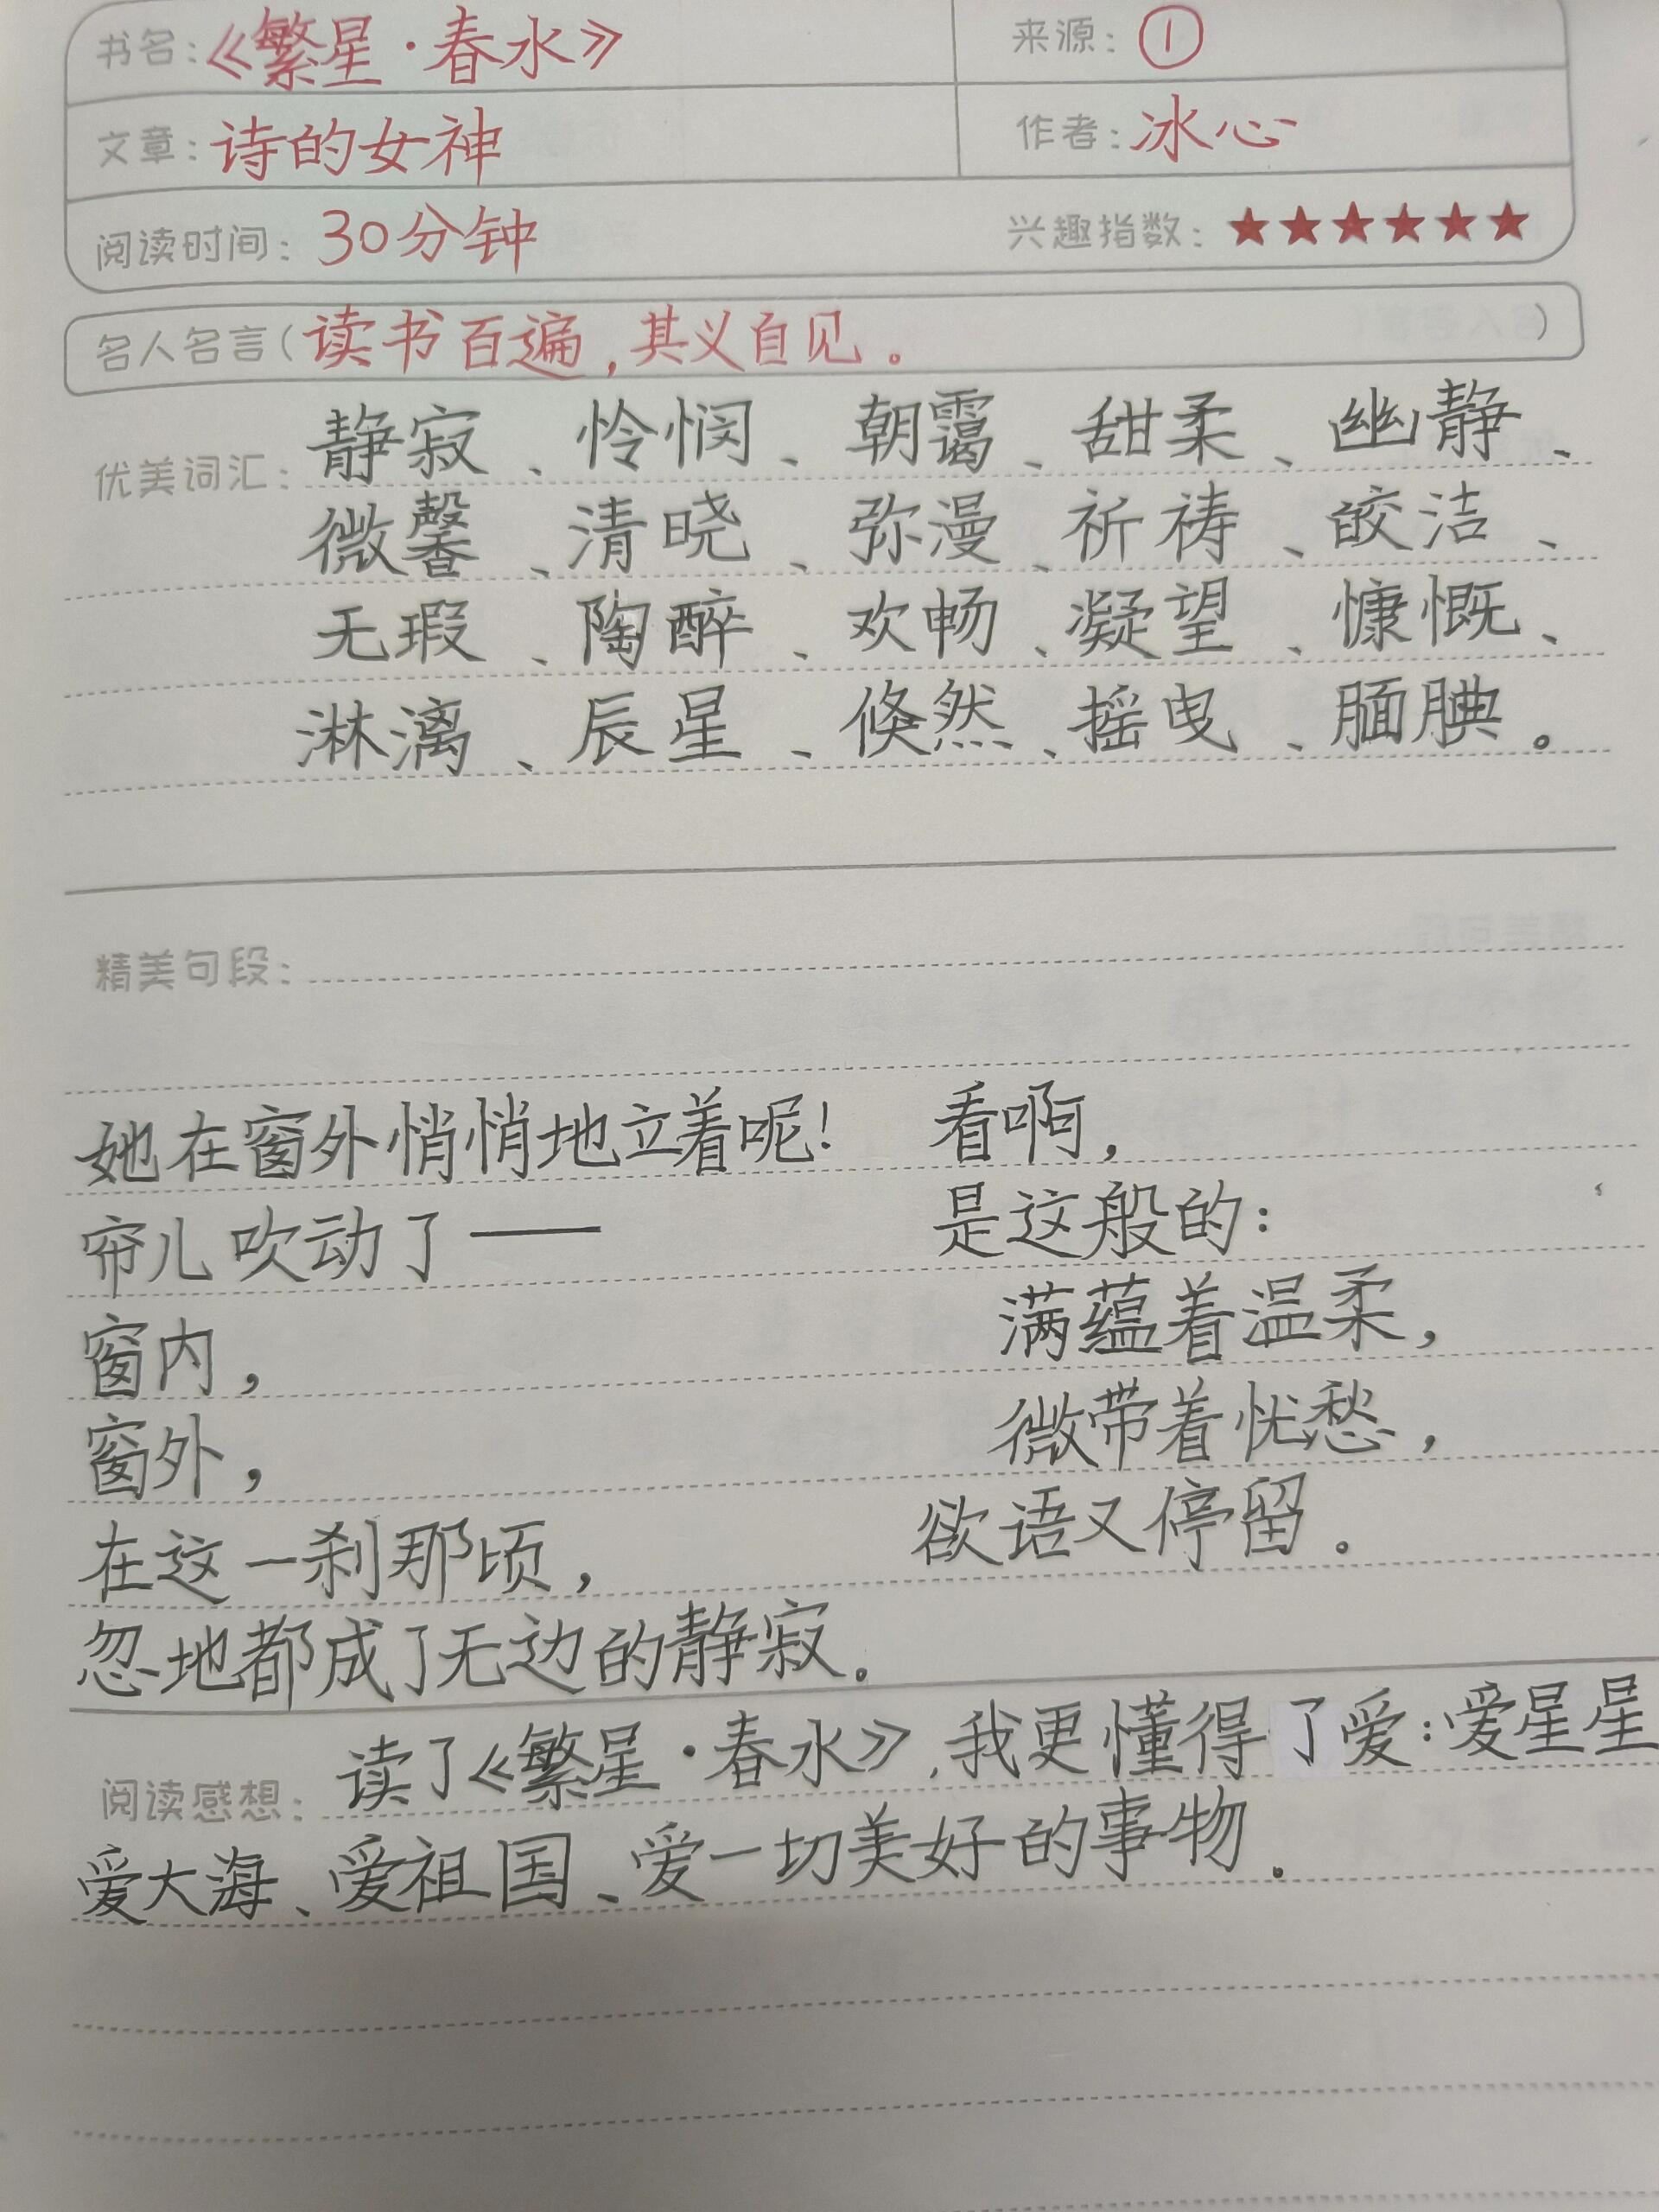 书名：《繁星·春水》 来源：①
文章：诗的女神 作者：冰心
阅读时间：30分钟 兴趣指数：★★★★★★
名人名言（读书百遍，其义自见。）
优美词汇：静寂、怜悯、朝霭、甜柔、幽静、
微馨、清晓、弥漫、祈祷、皎洁、
无瑕、陶醉、欢畅、凝望、慷慨、
淋漓、辰星、倏然、摇曳、腼腆。
精美句段：
她在窗外悄悄地立着呢！
帘儿吹动了——
窗内，
窗外，
在这一刹那顷，
忽地都成了无边的静寂。
看啊，
是这般的：
满蕴着温柔，
微带着忧愁，
欲语又停留。
阅读感想：读了《繁星·春水》，我更懂得了爱：爱星星
爱大海、爱祖国、爱一切美好的事物.